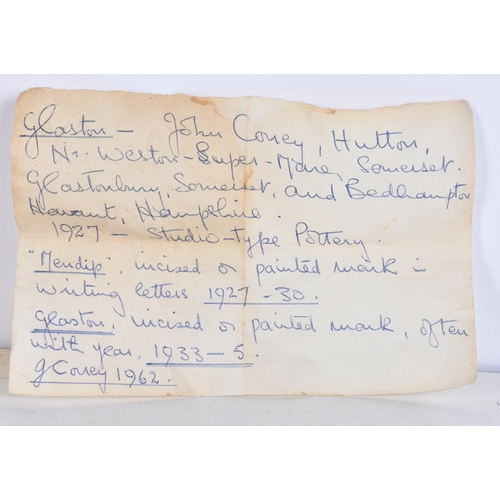 Glaston — John Coney, Hutton,
Nr. Weston-Super-Mare, Somerset.
Glastonbury, Somerset, and Bedhampton
Havant, Hampshire.
1927 — Studio-type Pottery.
"Mendip", incised or painted mark in
writing letters 1927-30.
Glaston, incised or painted mark, often
with year. 1933-5.
J Coney 1962.